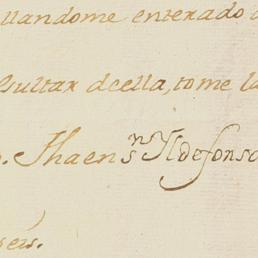 llandome enterado
sultar deella, tome la
Jhaen sn Yldefonso
seis.